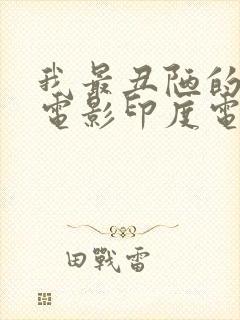 我最丑陋的
電影印度電
田戰雷